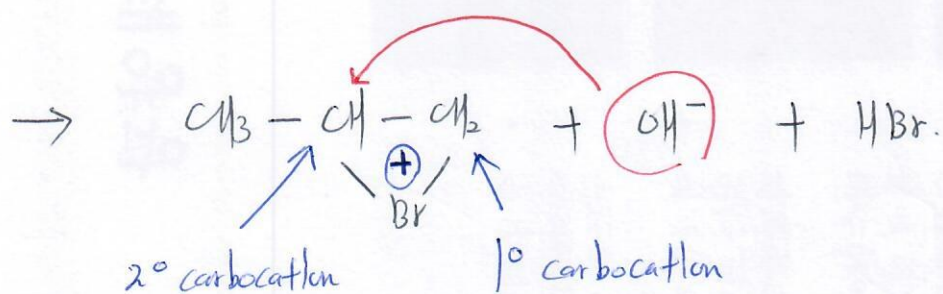 → CH3 – CH – CH2 + OH⁻ + HBr.
+
Br
2° carbocation 1° carbocation